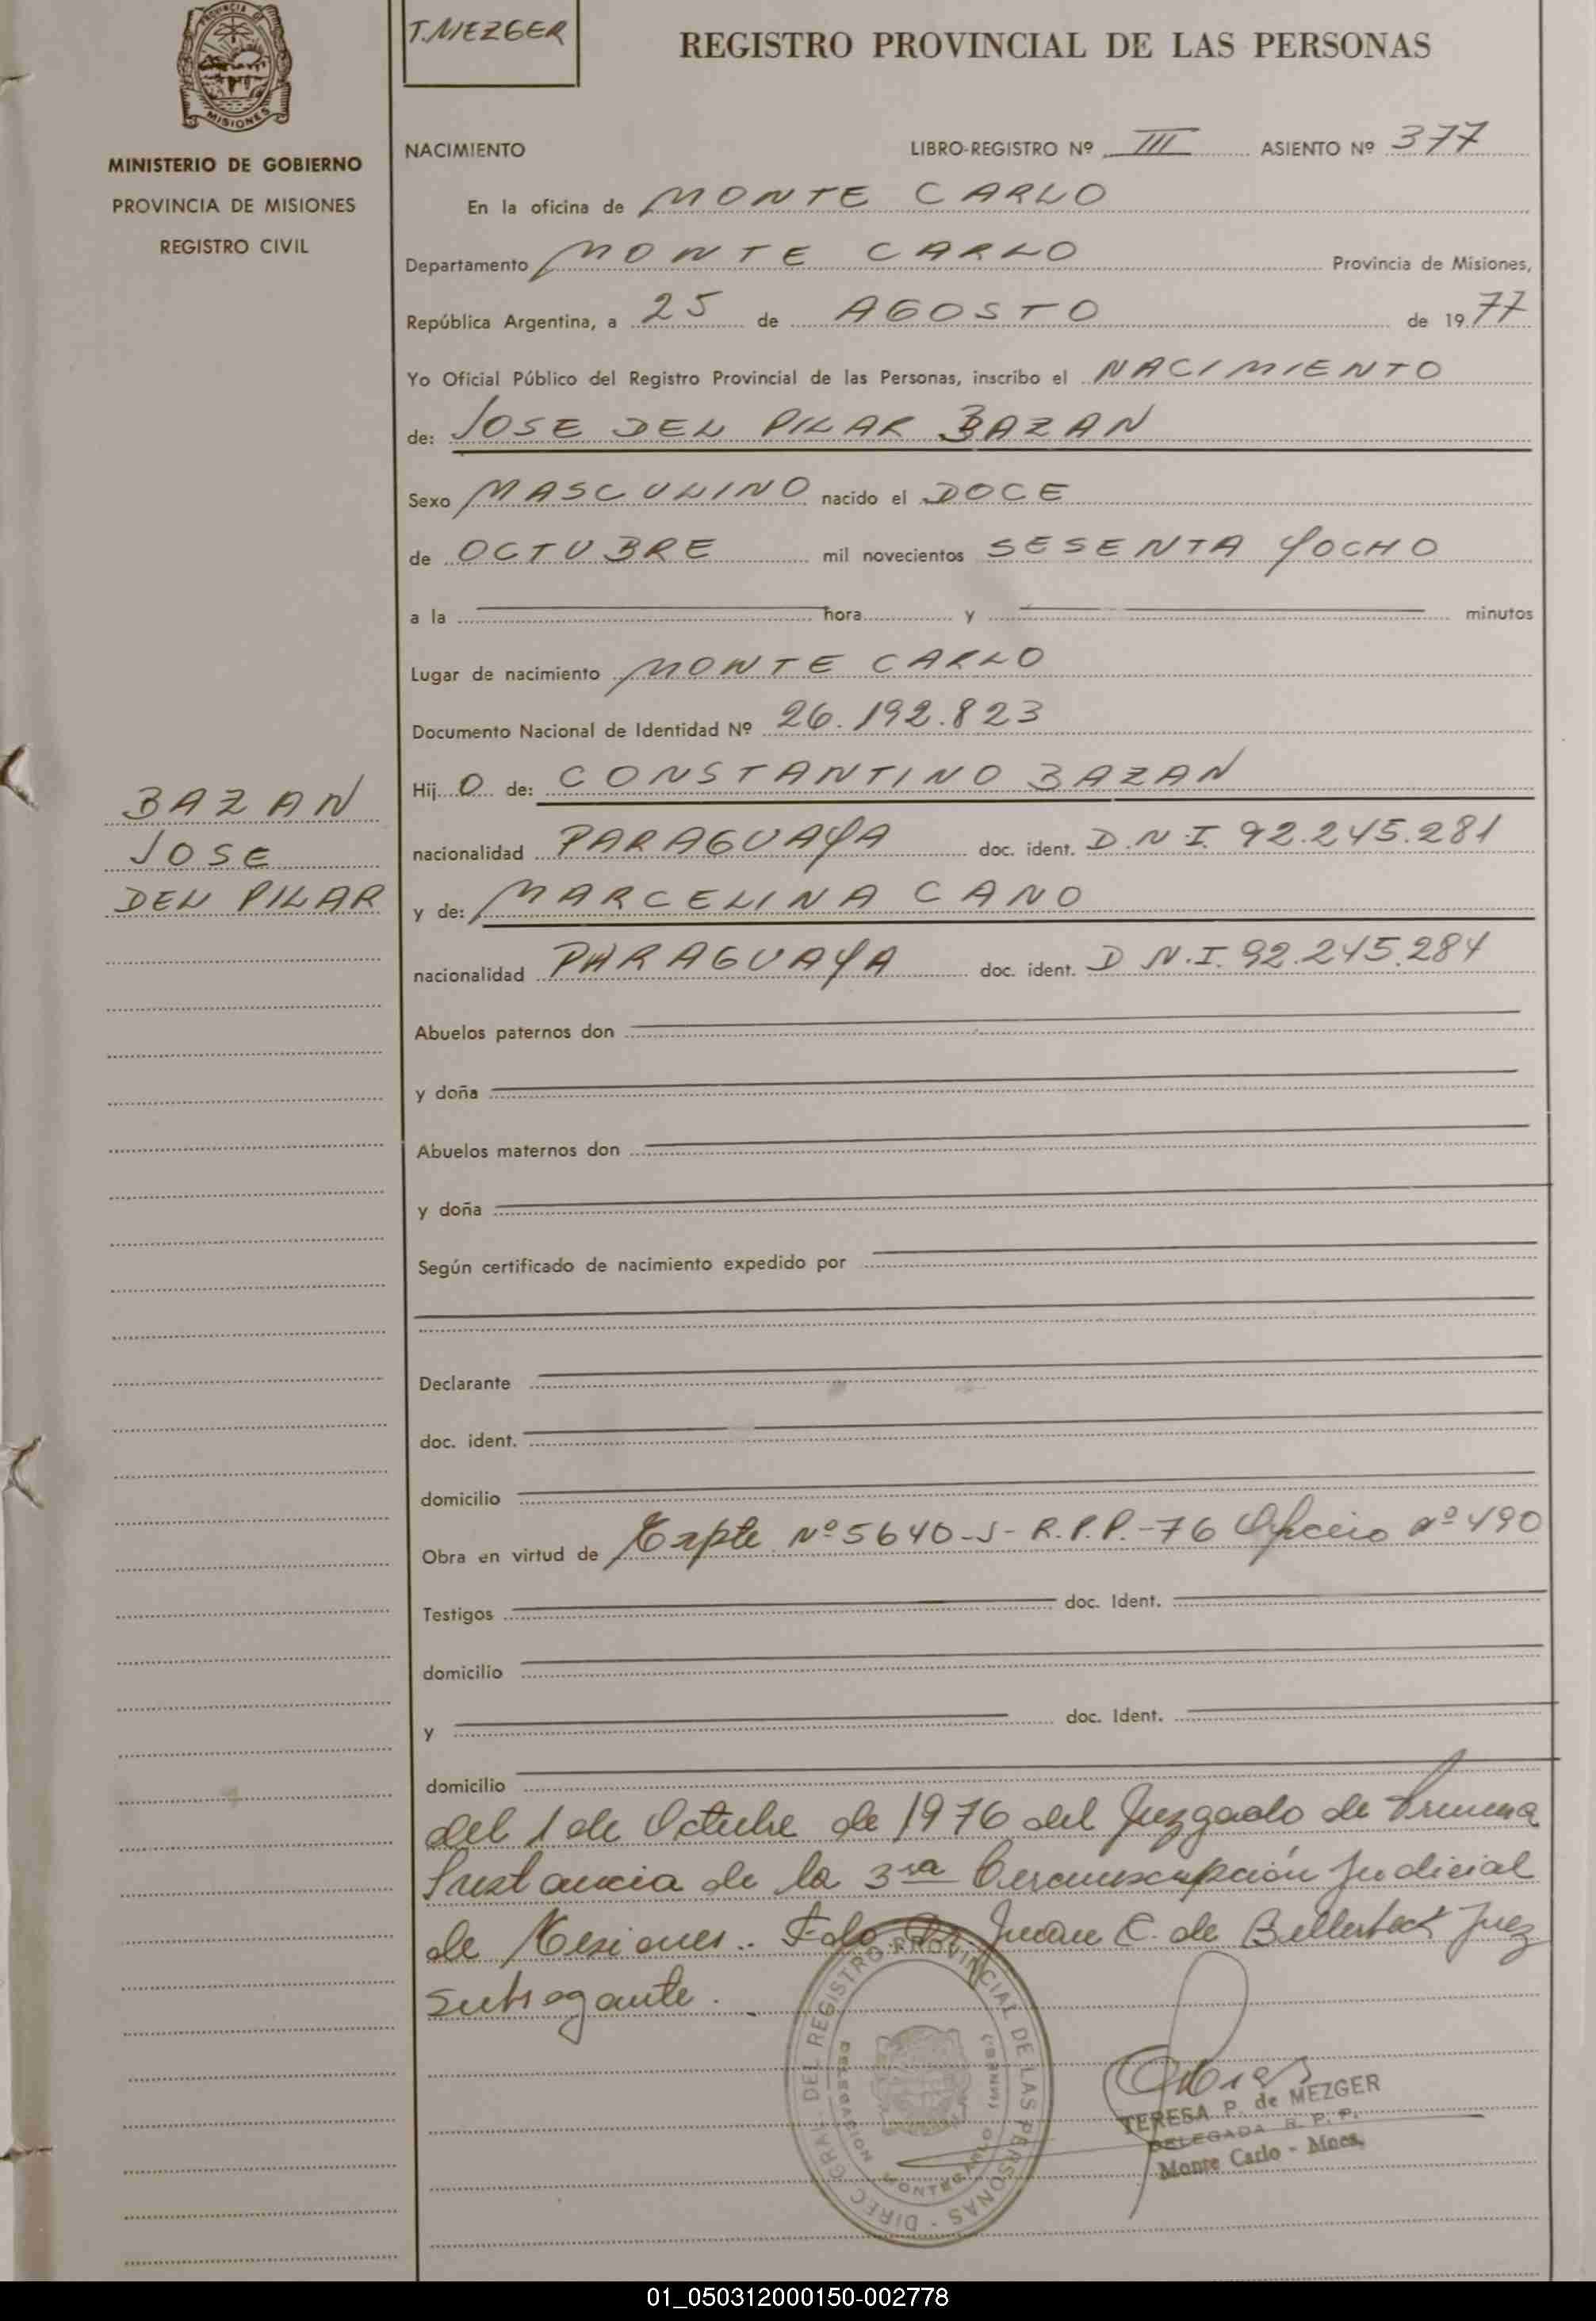 PROVINCIA DE
MISIONES
MINISTERIO DE GOBIERNO
PROVINCIA DE MISIONES
REGISTRO CIVIL
BAZAN
JOSE
DEL PILAR
T. MEZGER
REGISTRO PROVINCIAL DE LAS PERSONAS
NACIMIENTO LIBRO-REGISTRO Nº III ASIENTO Nº 377
En la oficina de MONTE CARLO
Departamento MONTE CARLO Provincia de Misiones,
República Argentina, a 25 de AGOSTO de 1977
Yo Oficial Público del Registro Provincial de las Personas, inscribo el NACIMIENTO
de: JOSE DEL PILAR BAZAN
Sexo MASCULINO nacido el DOCE
de OCTUBRE mil novecientos SESENTA YOCHO
a la hora y minutos
Lugar de nacimiento MONTE CARLO
Documento Nacional de Identidad Nº 26.192.823
Hij O de: CONSTANTINO BAZAN
nacionalidad PARAGUAYA doc. ident. D.N.I. 92.245.281
y de: MARCELINA CANO
nacionalidad PARAGUAYA doc. ident. D N.I. 92.245.284
Abuelos paternos don
y doña
Abuelos maternos don
y doña
Según certificado de nacimiento expedido por
Declarante
doc. ident.
domicilio
Obra en virtud de Expte Nº 5640-J- R.P.P.-76 Oficio nº 490
Testigos doc. Ident.
domicilio
y doc. Ident.
domicilio
del 1 de Octubre de 1976 del Juzgado de Primera
Instancia de la 3ra Circunscripción Judicial
de Misiones. Fdo Dr Juan C. de Juez
Subrogante.
DIREC. GRAL. DEL REGISTRO PROVINCIAL DE LAS PERSONAS
DELEGACION MONTECARLO (MISIONES)
TERESA P. de MEZGER
DELEGADA R. P. P.
Monte Carlo - Mnes.
01_050312000150-002778